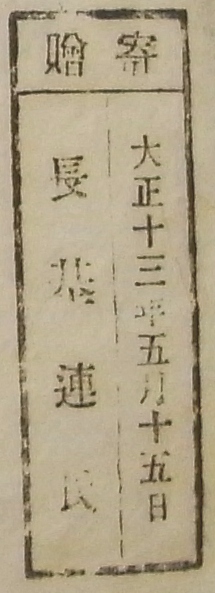 寄贈
大正十三年五月十五日
長基連氏